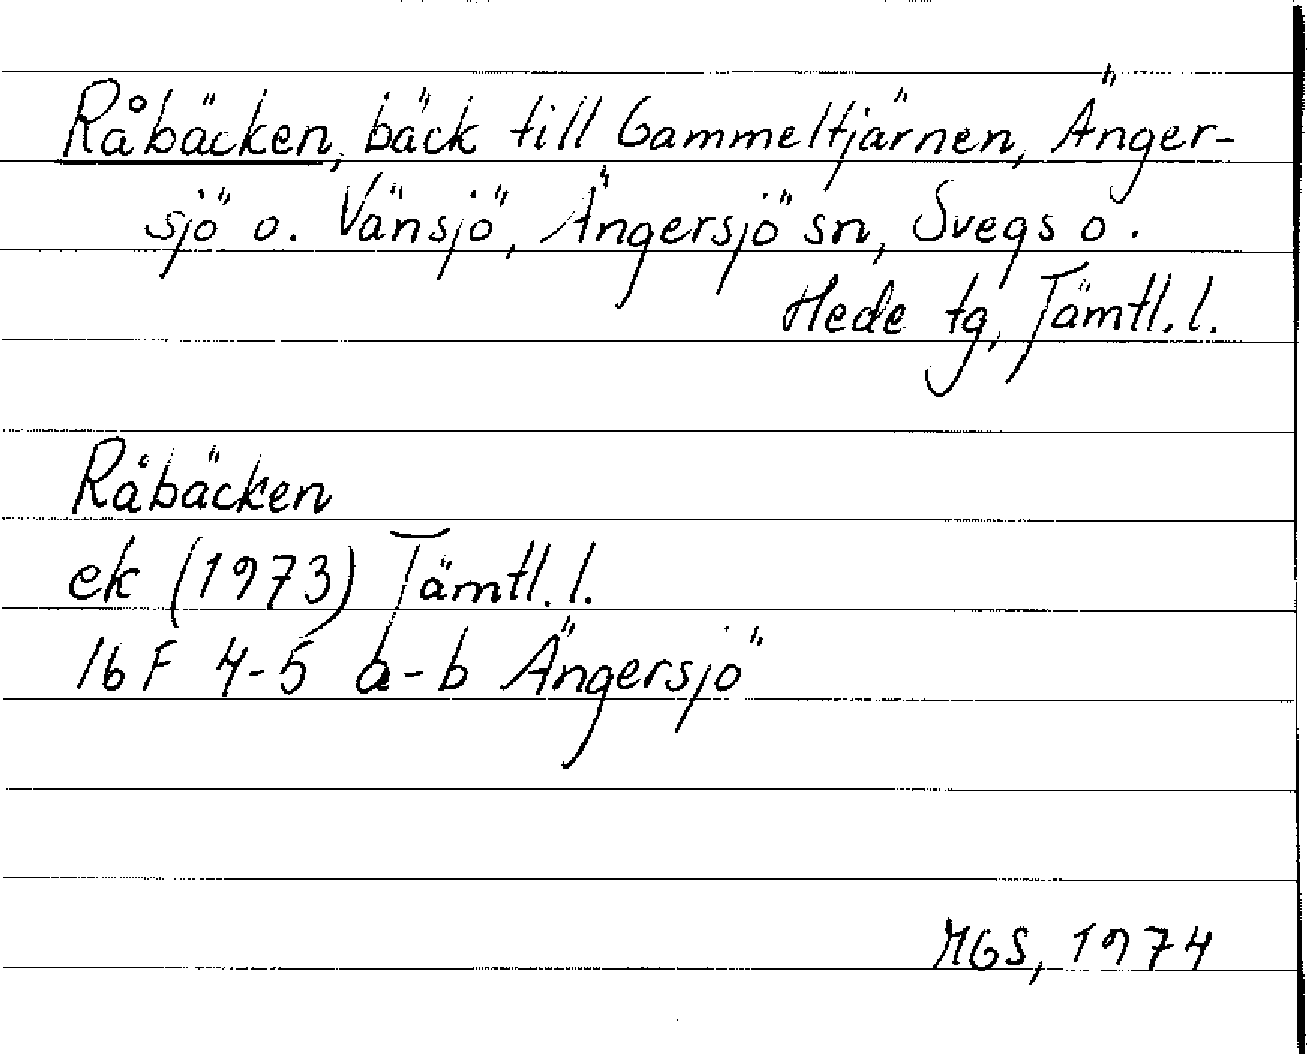 Råbäcken, bäck till Gammeltjärnen, Änger-
sjö o. Vänsjö, Ängersjö sn, Svegs o.
Hede tg, Jämtl. l.
Råbäcken
ek (1973) Jämtl. l.
16 F 4-5 a-b Ängersjö
MGS, 1974